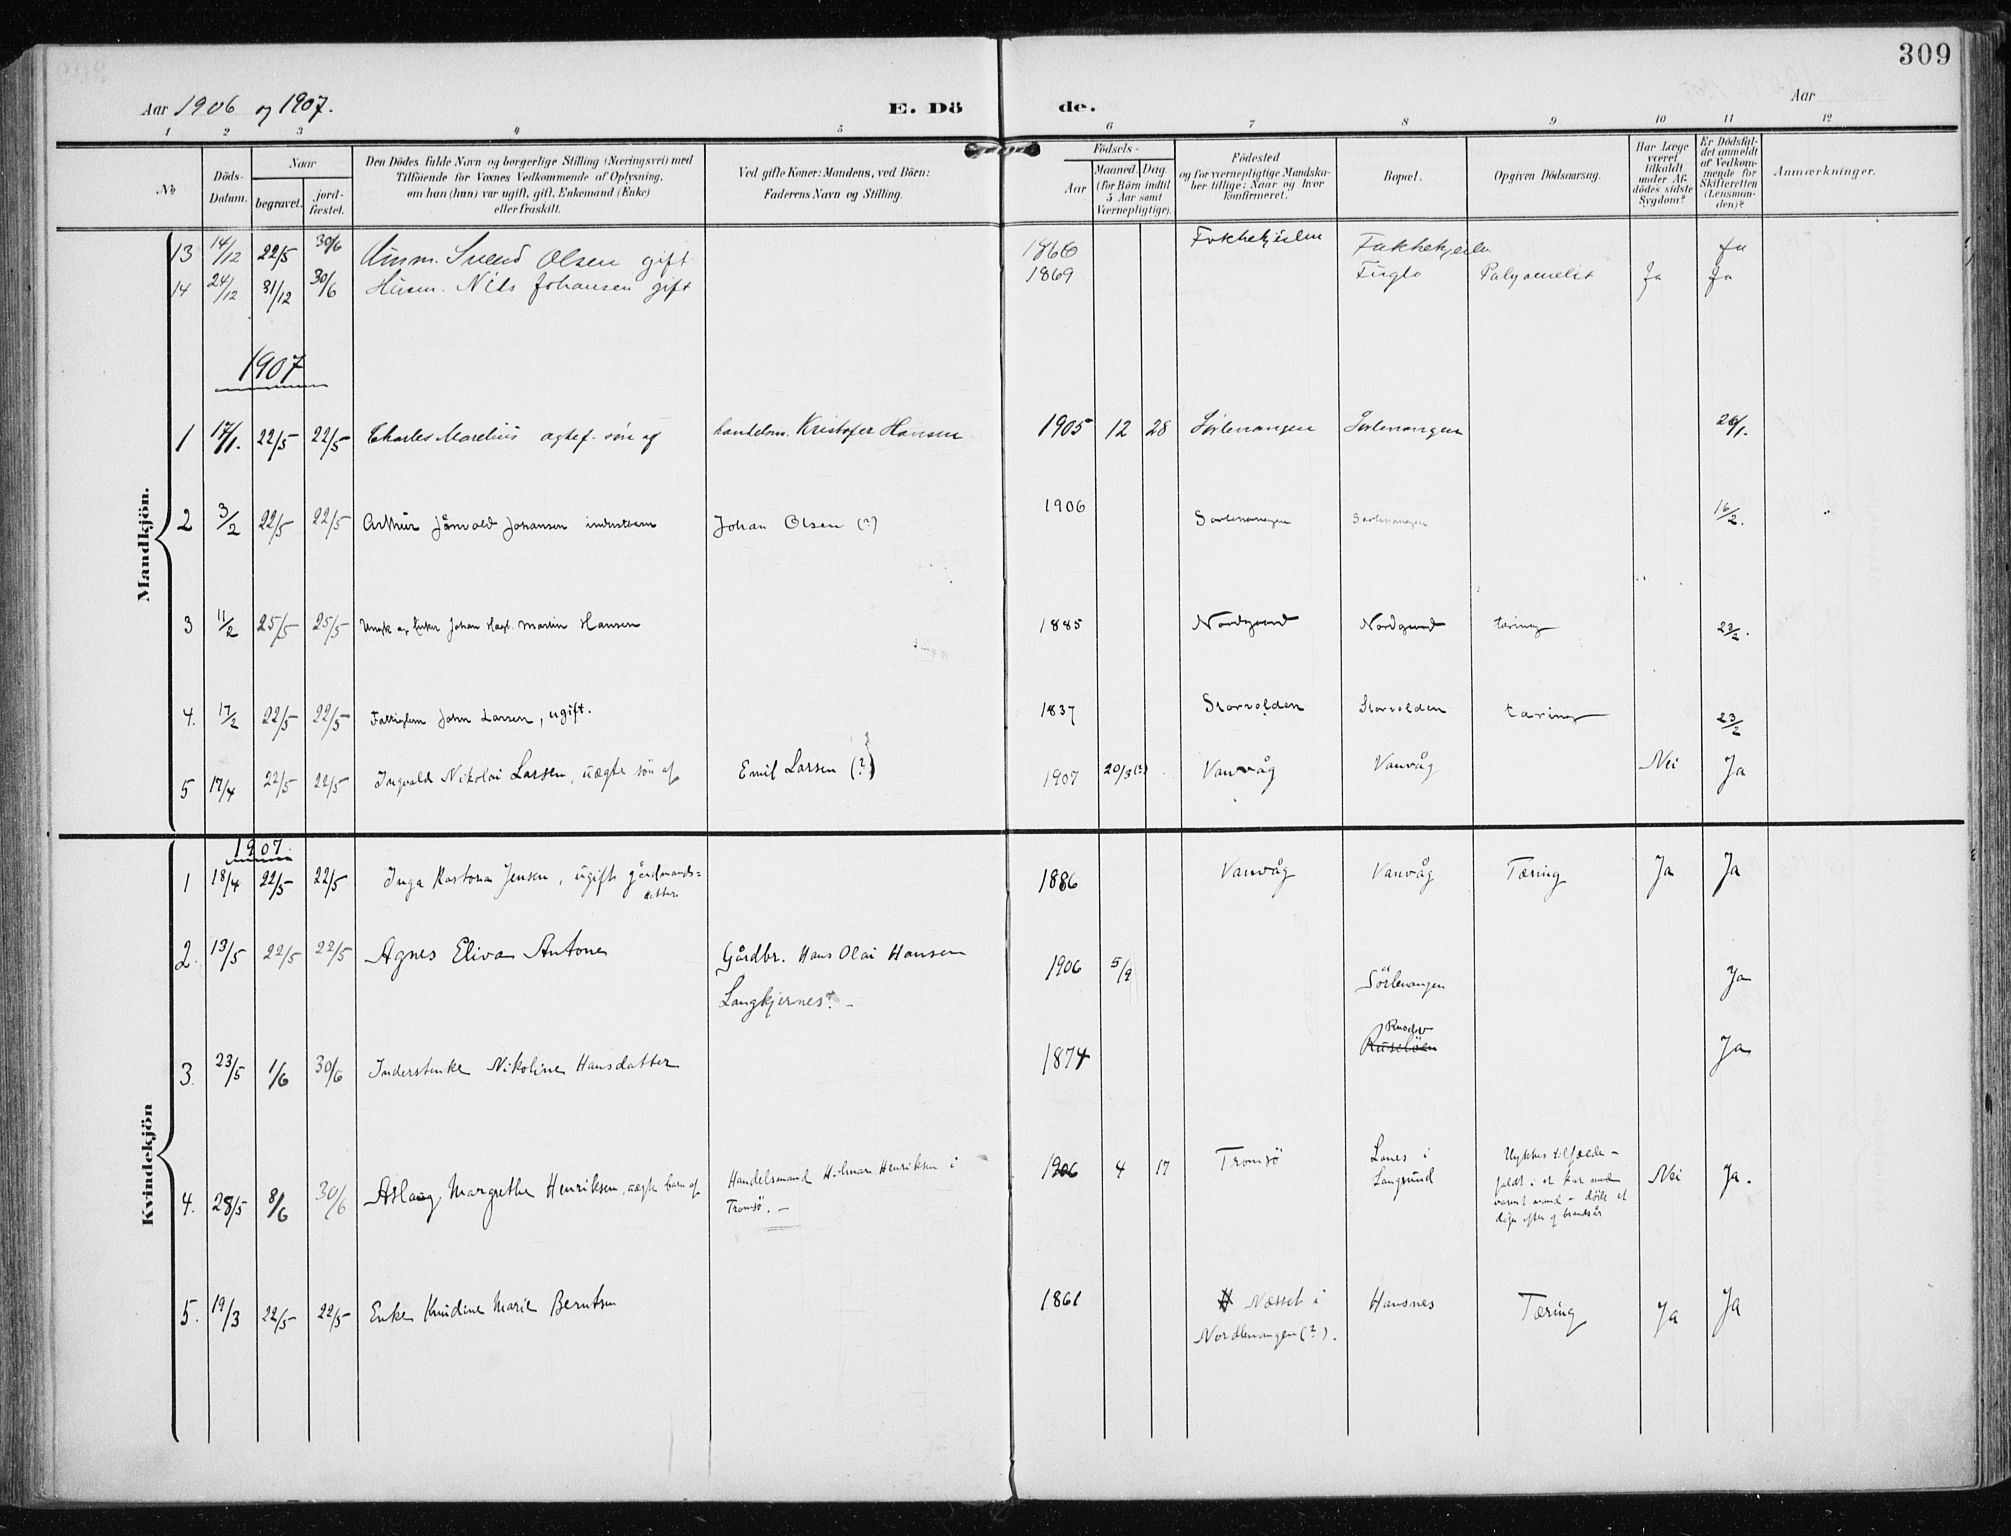 309
Aar 1906 og 1907.
E. Dö de.
Aar
1 2 3 4 5 6 7 8 9 10 11 12
No
Döds-Datum.
Naar
begravet.
jord-fæstet.
Den Dödes fulde Navn og borgerlige Stilling (Næringsvei) med
Tilföiende for Voxnes Vedkommende af Oplysning,
om han (hun) var ugift, gift, Enkemand (Enke)
eller fraskilt.
Ved gifte Koner: Mandens, ved Börn:
Faderens Navn og Stilling.
Födsels-
Aar
Maaned. Dag.
(for Börn indtil
5 Aar samt
Værnepligtige).
Födested
og for værnepligtige Mandska-
ber tillige: Naar og hvor
konfirmeret.
Bopæl.
Opgiven Dödsaarsag.
Har Læge
været
tilkaldt
under Af-
dödes sidste
Sygdom?
Er Dödsfal-
det anmeldt
af Vedkom-
mende for
Skifteretten
(Lensman-
den)?
Anmærkninger.
Mandkjön.
13 14/12 22/5 30/6 Husm. Svend Olsen gift 1866 Ja
14 24/12 31/12 30/6 Husm. Nils Johansen gift 1869 Fuglo Ja Ja
1907
1 17/1. 22/5 22/5 Charles Marelius ægtef. sön af handelsm. Kristofer Hansen 1905 12 28 Sörlenangen Sörlenangen 26/1.
2 3/2 22/5 22/5 Arthur Johansen Johan Olsen (?) 1906 Sörlenangen Sörlenangen 16/2.
3 11/2 25/5 25/5 Ungk og fisker Johan Hagb. Martin Hansen 1885 Nordgrund Nordgrund tæring 23/2.
4. 17/2 22/5 22/5 Fattiglem John Larsen, ugift. 1837 Storvolden Storvolden tæring 23/2
5 17/4 22/5 22/5 Ingvald Nikolai Larsen, uægte sön af Emil Larsen (?) 1907 20/3 (?) Vanvåg Vanvåg Nei Ja
Kvindekjön
1907.
1 18/4 22/5 22/5 Inga Jensen, ugift gårdmands-
datter 1886 Vanvåg Vanvåg Tæring Ja Ja
2. 13/5 22/5 22/5 Agnes Eliva Antone Gårdbr. Hans Olai Hansen
Langkjernes? - 1906 5/9 Sörlenangen Ja
3. 23/5 1/6 30/6 Inderstenke Nikoline Hansdatter 1874 Ja
4. 28/5 8/6 30/6 Aslaug Margrethe Henriksen, ægte barn af Handelsmand Hilmar Henriksen i
Tromsö. - 1906 4 17 Tromsö Lanes i
Langsund Ulykkestilfælde -
faldt i et kar med
varmt vand - döde et
døgn efter af brandsår Nei Ja.
5. 19/3 22/5 22/5 Enke Knudine Marie Berntsen 1861 Næsset i
Nordlenangen (?). Hansnes Tæring Ja Ja